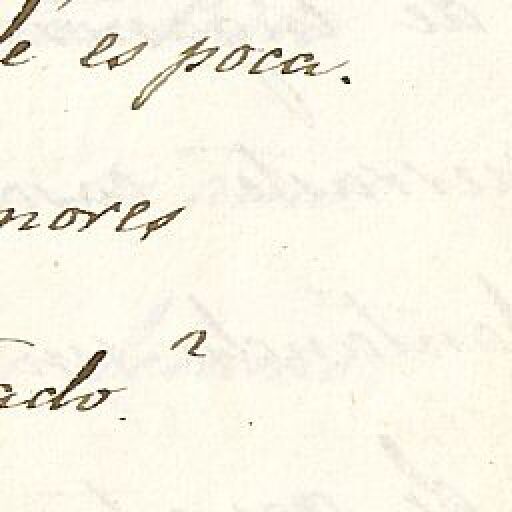 é es poca.
nores
ado.²